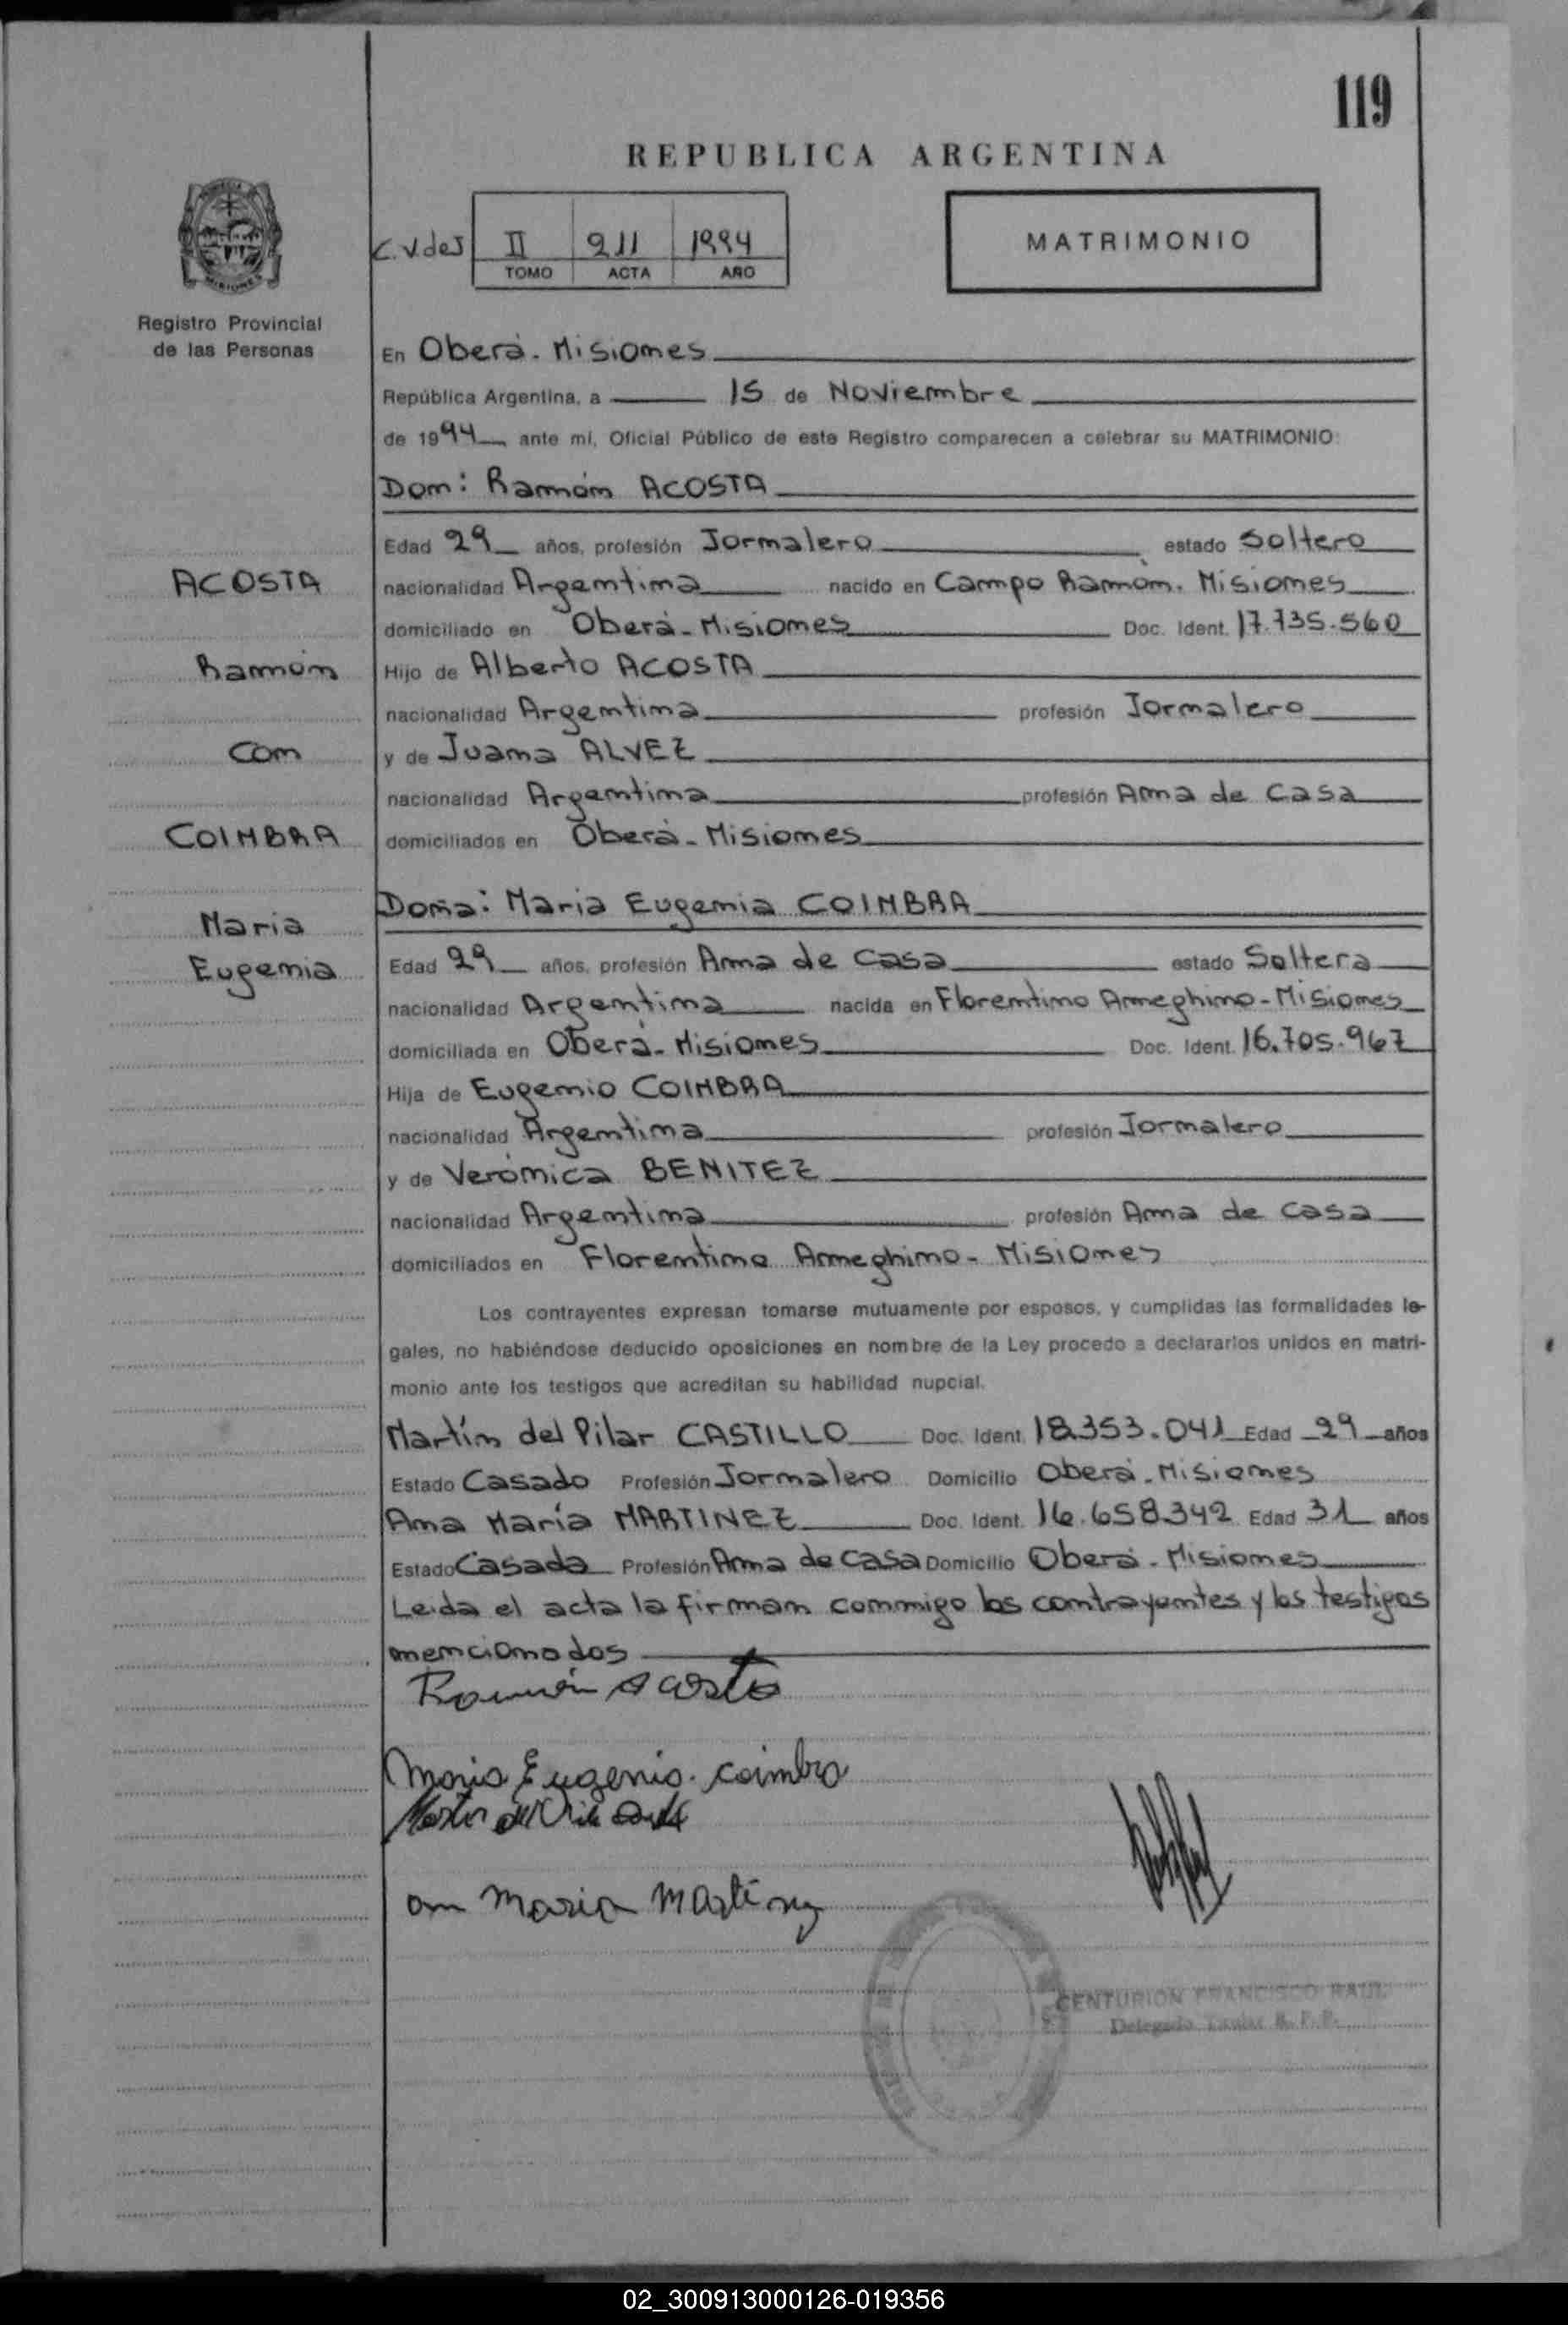 119
REPUBLICA ARGENTINA
C.V de I II 211 1994
TOMO ACTA AÑO
MATRIMONIO
MISIONES
Registro Provincial
de las Personas
En Oberá - Misiones
República Argentina, a 15 de Noviembre
de 1994 ante mí, Oficial Público de este Registro comparecen a celebrar su MATRIMONIO:
Don: Ramón ACOSTA
Edad 29 años, profesión Jornalero estado Soltero
ACOSTA
nacionalidad Argentina nacido en Campo Ramón. Misiones
domiciliado en Oberá - Misiones Doc. Ident. 17.735.560
Ramón
Hijo de Alberto ACOSTA
nacionalidad Argentina profesión Jornalero
Con
y de Juana ALVEZ
nacionalidad Argentina profesión Ama de Casa
COIMBRA
domiciliados en Oberá - Misiones
Doña: Maria Eugenia COIMBRA
Maria
Edad 29 años, profesión Ama de Casa estado Soltera
Eugenia
nacionalidad Argentina nacida en Florentino Ameghino - Misiones
domiciliada en Oberá - Misiones Doc. Ident. 16.705.967
Hija de Eugenio COIMBRA
nacionalidad Argentina profesión Jornalero
y de Verónica BENITEZ
nacionalidad Argentina profesión Ama de Casa
domiciliados en Florentino Ameghino - Misiones
Los contrayentes expresan tomarse mutuamente por esposos, y cumplidas las formalidades le-
gales, no habiéndose deducido oposiciones en nombre de la Ley procedo a declararlos unidos en matri-
monio ante los testigos que acreditan su habilidad nupcial.
Martín del Pilar CASTILLO Doc. Ident. 18.353.041 Edad 29 años
Estado Casado Profesión Jornalero Domicilio Oberá - Misiones
Ana María MARTINEZ Doc. Ident. 16.658.342 Edad 31 años
Estado Casada Profesión Ama de Casa Domicilio Oberá - Misiones
Leida el acta la firman conmigo los contrayentes y los testigos
mencionados
Ramón Acosta
Maria Eugenia. Coimbra
Maria Martinez
CENTURION FRANCISCO RAUL
Delegado Titular R. P. P.
02_300913000126-019356